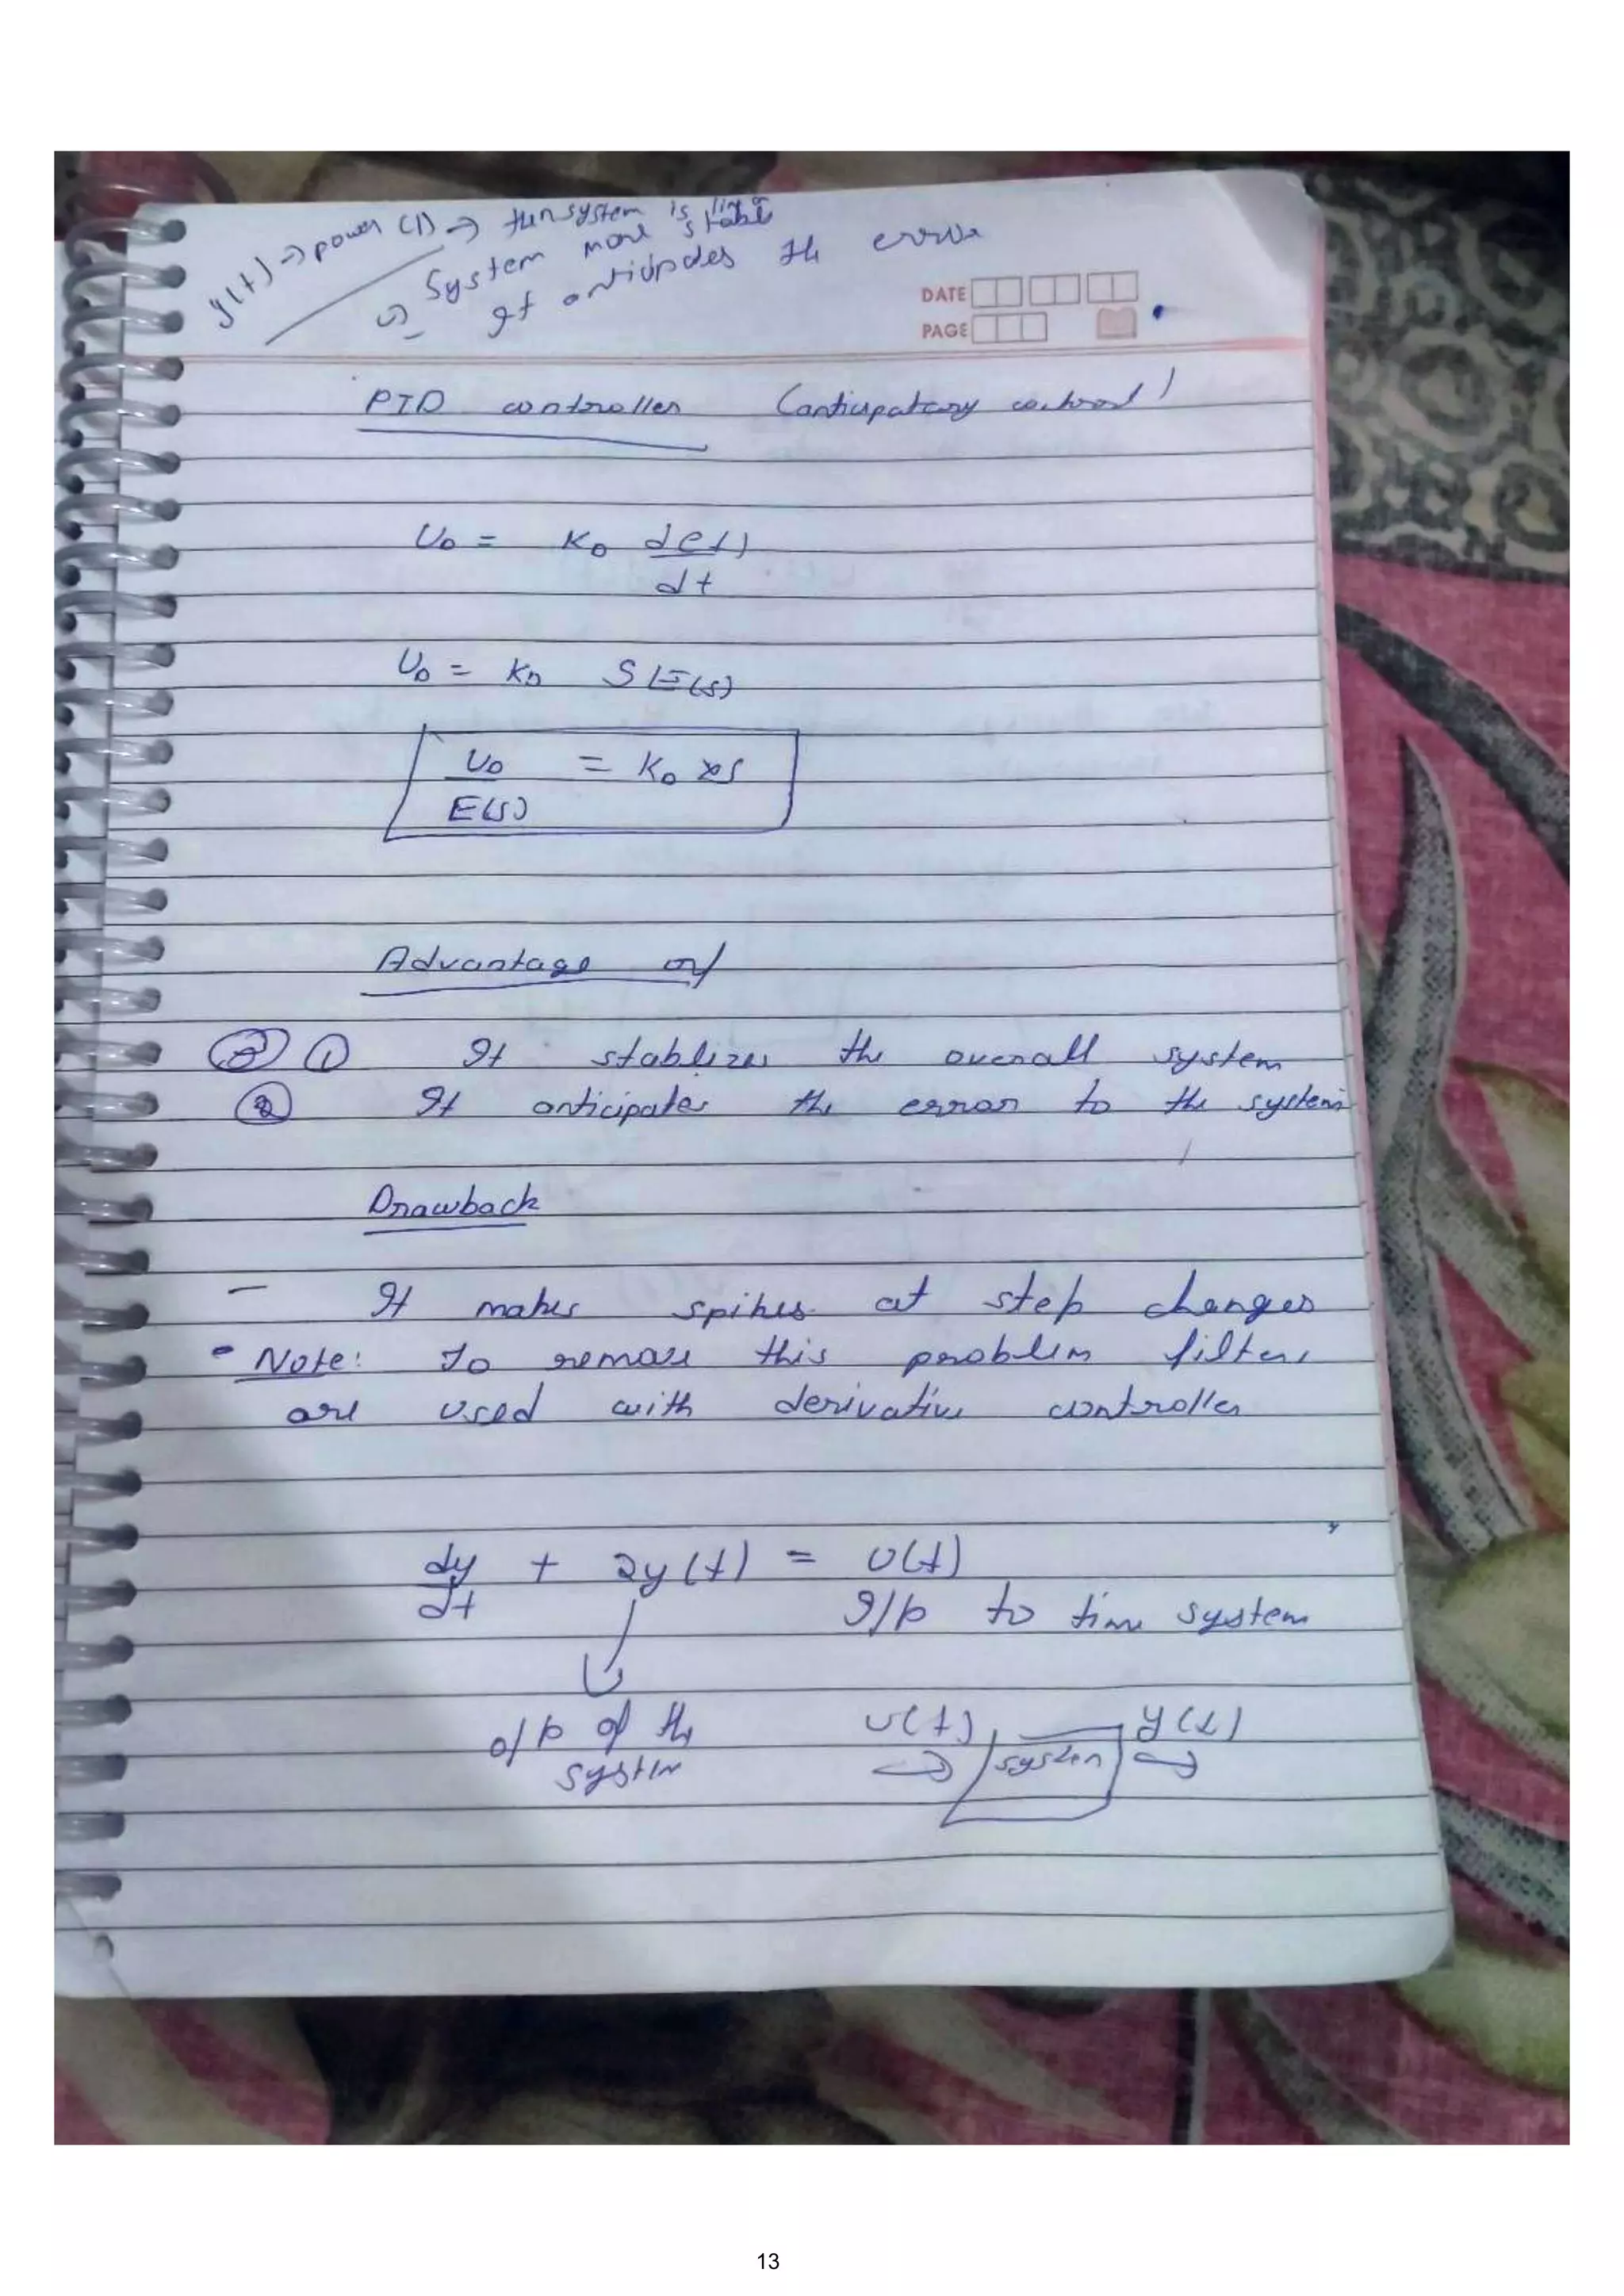 y(t) → power (1) → then system is linear
System more stable
It anticipates the error
DATE
PAGE
PID controller (anticipatory control)
U_D = K_D de(t)
dt
U_D = K_D S E(s)
U_D = K_D × s
E(s)
Advantage of
① It stablizes the overall system
② It anticipates the error to the system
Drawback
- It makes spikes at step changes
• Note: To remove this problem filters
are used with derivative controller
dy + 2y(t) = U(t)
dt I/p to time system
o/p of the u(t) y(t)
system → system →
13